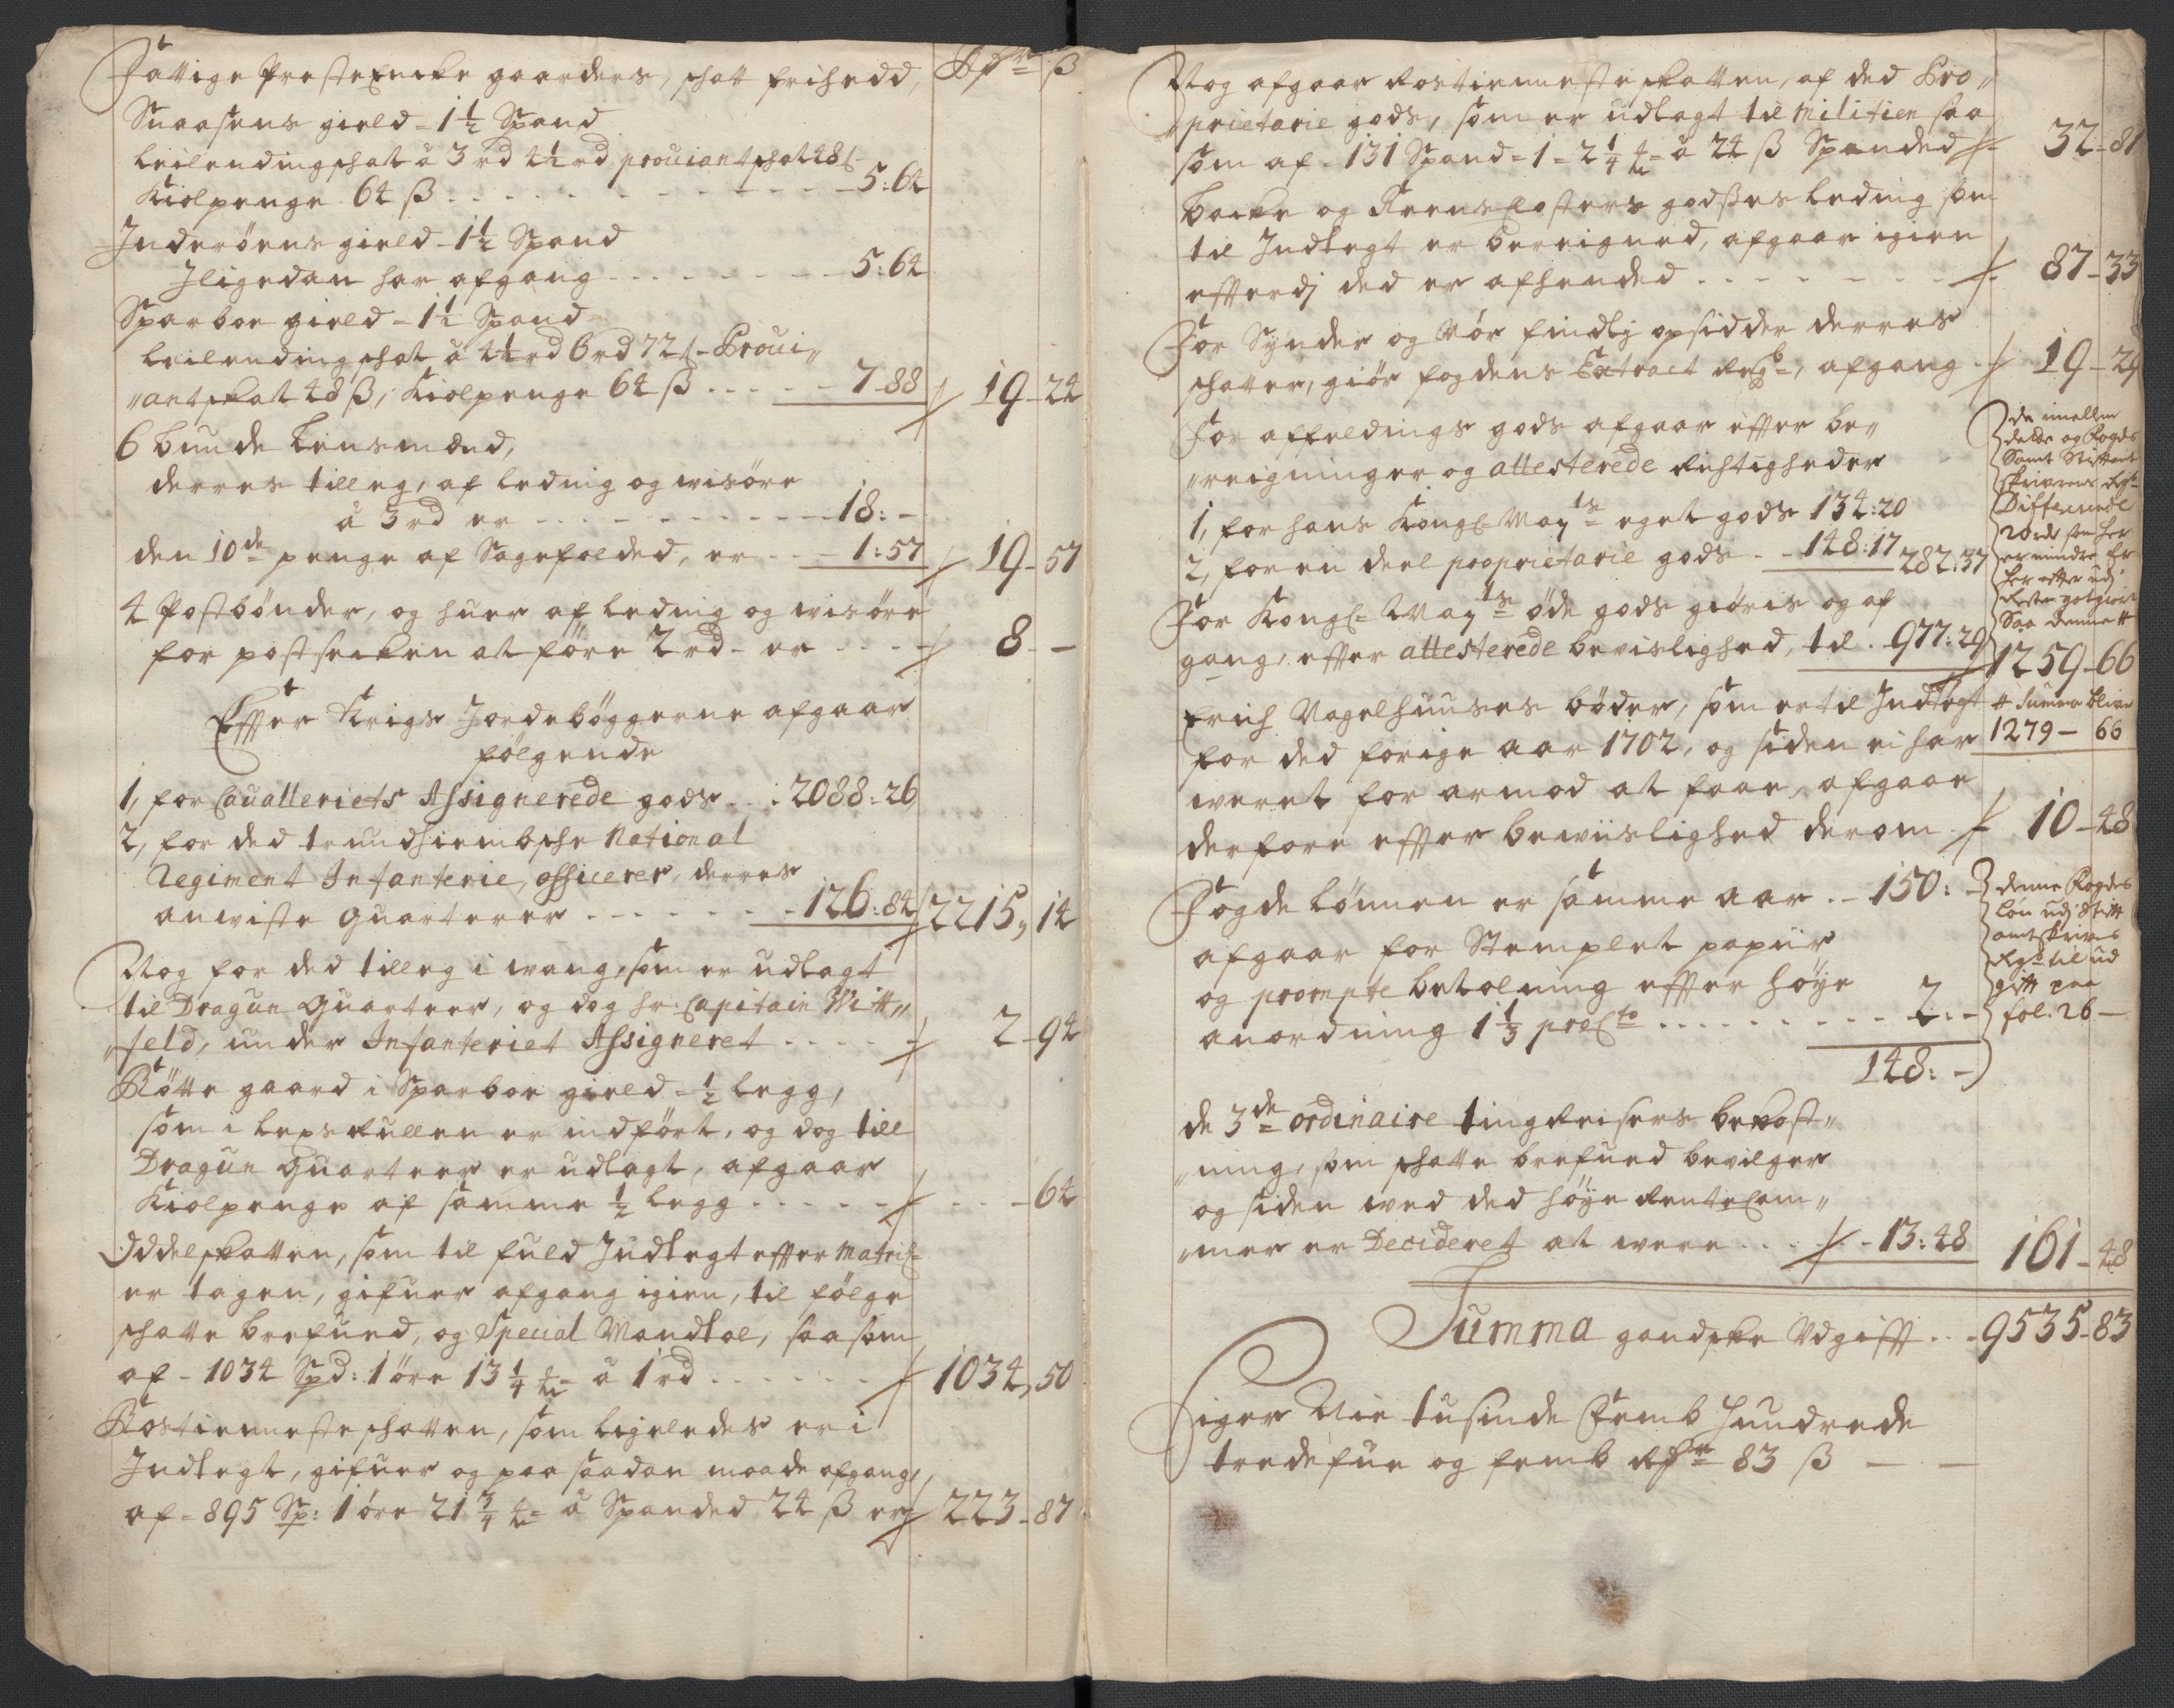 Fattige Presteencke gaarders, schatt frihedd, Rdr ß
Snaasens gield - 1½ Spand
Leilendingschat â 3 rd 4½ rd, proviantschat 48 ß
Kiolpenge 64 ß . . . . . . . . 5:64
Inderöens gield - 1½ Spand
Iligedan har afgang - - - - - - - 5:64
Sparboe gield - 1½ Spand
Leilendingschat â 4½ rd 6 rd 72 ß - Provi„
„antskat 48 ß, Kiolpenge 64 ß . . . . - 7-88 19-24
6 bunde Lensmænd,
derres tilleg, af leding og wisöre
â 3 rd er - - - - - - - - - 18:-
den 10de penge af Sagefolded, er - - - 1:57 19-57
4 Postbönder, og huer af leding og wisöre
for postsecken at före 2 rd - er - - - 8 - -
Effter Krigs Jordebøggerne afgaar
følgende
1, for Cavalleriets Assignerede gods . . . 2088:26
2, for ded trundhiembsche National
Regiment Infanterie, officerer, derres
anviste quarterer . . . . . . . 126:84 2215,14
Nog for ded tilleg i wang, som er udlagt
til Dragun Quarteer, og dog hr: Capitain Witt„
„feld, under Infanteriet Assigneret . . . . 2-94
Røtte gaard i Sparboe gield - ½ legg,
som i legs Rullen er indført, og dog till
Dragun Quarteer er udlagt, afgaar
Kiolpenge af samme ½ legg . . . . . . - - 64
Oddelskatten, som til fuld Indtegt effter Matric:
er tagen, gifuer afgang igien, til følge
schatte brefued, og Special Mandtal, saasom
af - 1034 Spd: 1 öre 13¼ â 1 rd . . . . . . 1034,50
Rostienneste schatten, som ligeledes er i
Indtegt, gifuer og paa saadan maade afgang,
af - 895 Sp: 1 öre 21¾ â Spanded 24 ß er 223-87
Nog afgaar Rostienneste skatten, af ded Pro„
„prietarie gods, som er udlagt til Militien saa
som af - 131 Spand - 1 - 2¼ â 24 ß Spanded 32-81
Backe og Reensclosters godsses leding som
til Indtegt er bereigned, afgaar igien
effterdj ded er afhended . . . . . . . 87-33
For Synder og Nör findlj opsidder derres
schatter, giör fogdens Extract Regsk:, afgang 19-29
For affeldings gods afgaar effter be„
„reigninger og attesterede Rigtigheder
1, for hans Kongl: May:ts eget gods 134:20
2, for en deel proprietarie gods . . 148:17 282:37
For Kongl: May:ts öde gods giöris og af
gang, effter attesterede bevislighed, til . 977:29 1259-66
Erich Nagelhuuses böder, som er til Indtegt
for ded forige aar 1702, og siden ei har
weret for armod at faae, afgaar
derfore effter bewiislighed derom . 10-48
Fogde lønnen er samme aar . . 150: -
afgaar for Stemplet papiir
og prompte betalning effter høye
anordning 1⅓ pro Cto . . . . . . . . 2 : -
148: -
de 3de ordinaire tingReisers bekost„
„ning, som schatte brefued bevilger
og siden wed ded høye RenteCam„
„mer er Decideret at were . . . . - 13:48 161-48
Summa gandske Udgifft . . . 9535-83
Siger Nie tusinde Femb Hundrede
tredefue og femb Rdr 83 ß - -
Samt Stifftamt
Differerede
20 rd som her
er mindre
# Summa bliver
1279 - 66
denne Fogdes
løn udj Stifft
amt skrivers
Rgs: til ud
gifft paa
fol. 26 -